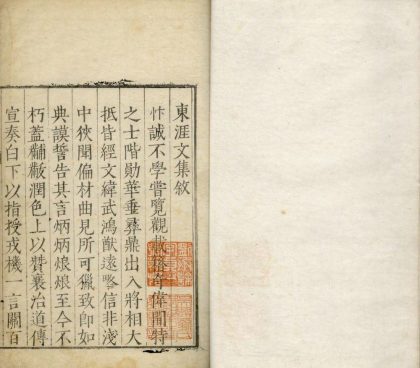 東涯文集敘
忭誠不學嘗覽觀載籍奇偉閒特
之士階勛華垂彝鼎出入將相大
抵皆經文緯武鴻猷遠畧信非淺
中狹聞偏材曲見所可獵致卽如
典謨誓告其言炳炳烺烺至今不
朽蓋黼黻潤色上以贊襄治道傳
宣奏白下以指授戎機一言關百